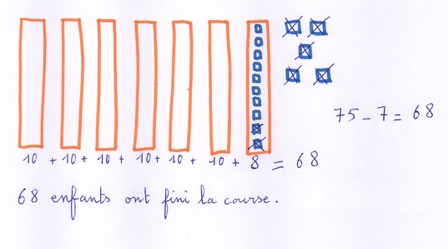 75 - 7 = 68
10 + 10 + 10 + 10 + 10 + 10 + 8 = 68
68 enfants ont fini la course.